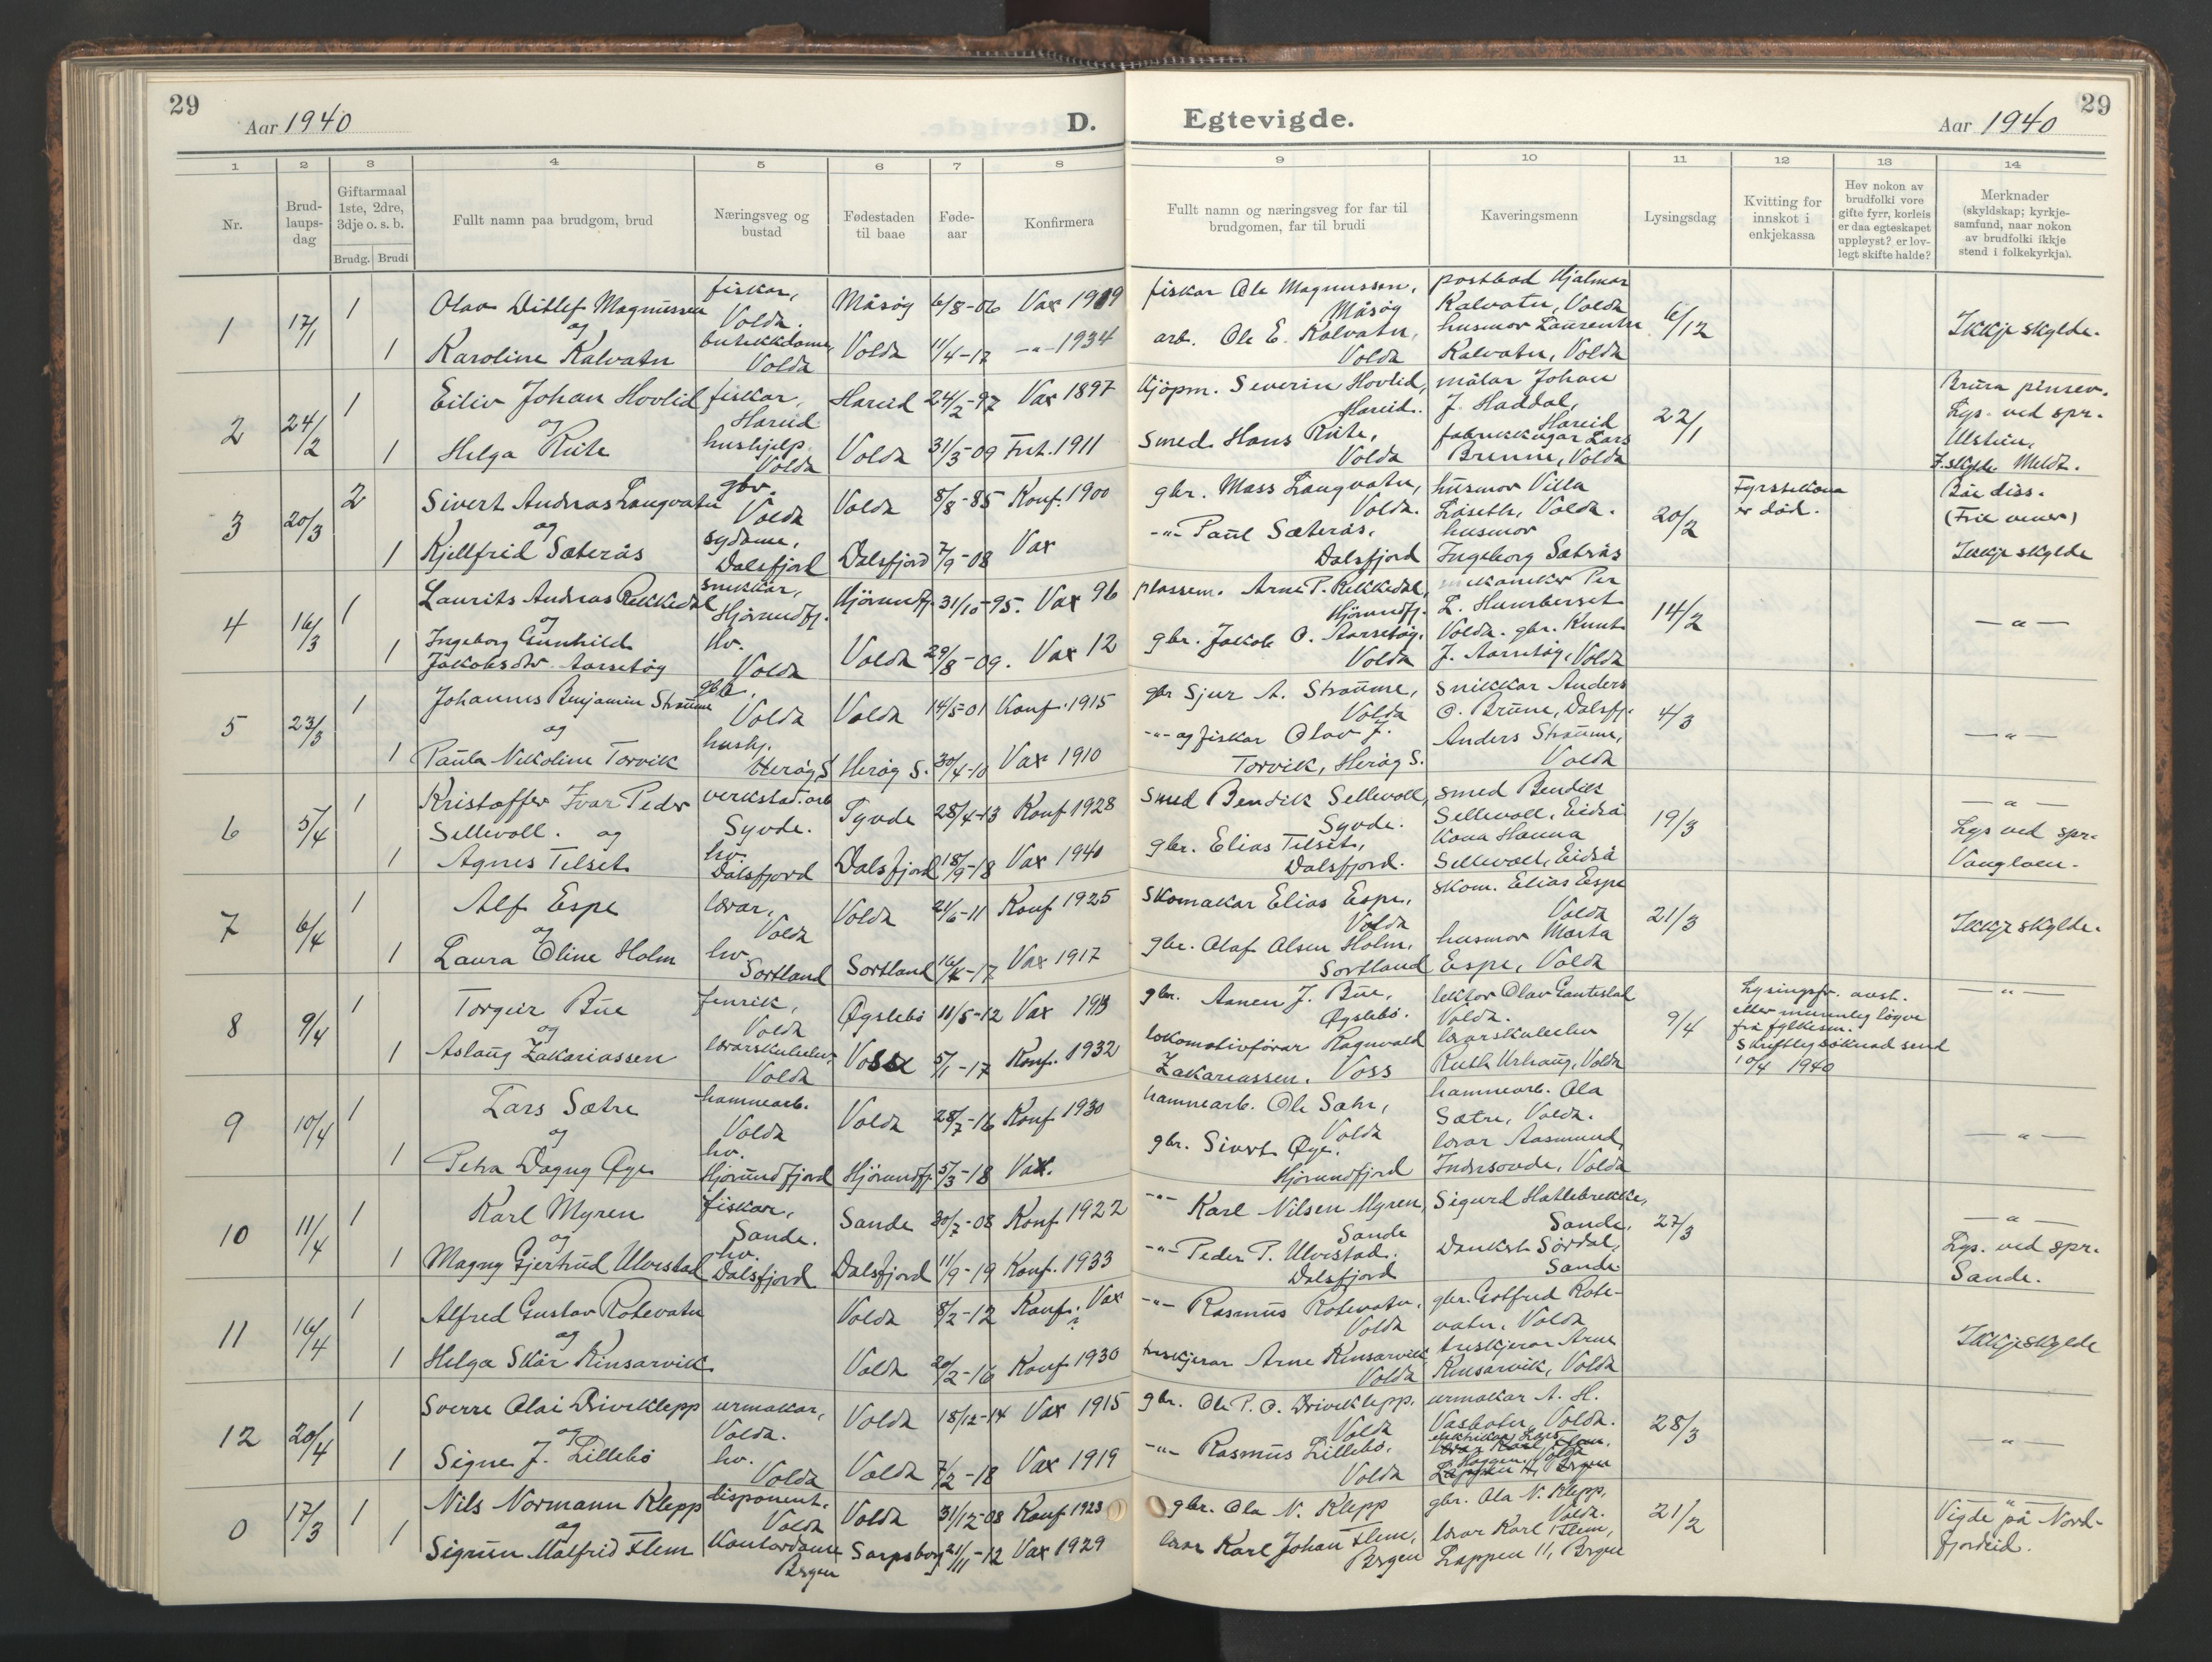 29
Aar 1940
D.
Egtevigde.
Aar 1940
29
1 2 3 4 5 6 7 8 9 10 11 12 13 14
Nr.
Brud-
laups-
dag
Giftarmaal
1ste, 2dre,
3dje o. s. b.
Brudg. Brudi
Fullt namn paa brudgom, brud
Næringsveg og
bustad
Fødestaden
til baae
Føde-
aar
Konfirmera
Fullt namn og næringsveg for far til
brudgomen, far til brudi
Kaveringsmenn
Lysingsdag
Kvitting for
innskot i
enkjekassa
Hev nokon av
brudfolki vore
gifte fyrr, korleis
er daa egteskapet
uppløyst? er lov-
legt skifte halde?
Merknader
(skyldskap; kyrkje-
samfund, naar nokon
av brudfolki ikkje
stend i folkekyrkja).
1 17/1
1 Olav Ditlef Magnussen fiskar, Volda. Måsøy 6/8-06 Vax 1919 fiskar Ole Magnussen, Måsøy postbod Hjalmar Kalvatn, Volda 6/12 Ikkje skylde.
og
1 Karoline Kalvatn butikkdame, Volda Volda 11/4-17 -"- 1934 arb. Ole E. Kalvatn, Volda husmor Laurentse Kalvatn, Volda
2 24/2
1 Eiliv Johan Hovlid fiskar, Hareid Hareid 24/2-97 Vax 1897 Kjöpm. Severin Hovlid, Hareid. målar Johan J. Haddal, Hareid 22/1 Brura pinsev. Lys. ved spr. Ulstein. I. skylde Meldt.
og
1 Helga Riite hushjelp. Volda Volda 31/3-09 Frit. 1911 Smed Hans Riite, Volda fabrikkeigar Lars Brenne, Volda
3 20/3
2 Sivert Andreas Langvatn gbr. Volda Volda 8/8-85 Konf. 1900 gbr. Mass Langvatn, Volda. husmor Villa Låseth, Volda. 20/2 Fyrstekona er död. Båe diss. (Frie vener) Ikkje skylde
og
1 Kjellfrid Sæterås sydame, Dalsfjord Dalsfjord 7/9-08 Vax -"- Paul Sæterås, Dalsfjord husmor Ingeborg Sæterås
4 16/3
1 Laurits Andreas Rekkedal snikkar, Hjørundfj. Hjørundfj. 31/10-95. Vax 96 plassem. Arne P. Rekkedal, Hjørundfj. mekaniker Per L. Humberset Volda. 14/2 -"-
og
1 Ingeborg Gunhild Jakobsdtr. Aarsetøy hv. Volda Volda 29/8-09. Vax 12 gbr. Jakob O. Aarsetøy. Volda gbr. Knut J. Aarsetøy, Volda
5 23/3
1 Johannes Benjamin Straume gbr., Volda Volda 14/5-01 Konf. 1915 gbr Sjur A. Straume, Volda snikkar Anders O. Brune, Dalsfj. 4/3 -"-
og
1 Paula Nikoline Torvik hushj. Herøy S. Herøy S. 30/4-10 Vax 1910 -"- og fiskar Olav J. Torvik, Herøy S. Anders Straume, Volda
6 5/4
1 Kristoffer Ivar Peder Sellevoll. og verkstad.arb Syvde. Syvde 28/4-13 Konf 1928 smed Bendik Sellevoll, Syvde. smed Bendik Sellevoll, Eidså 19/3 -"- Lys ved spr. Vanylven.
1 Agnes Tilset hv. Dalsfjord Dalsfjord 18/9-18 Vax 1940 gbr. Elias Tilset, Dalsfjord. Kona Hanna Sellevoll, Eidså
7 6/4
1 Alf Espe lærar, Volda Volda 21/6-11 Konf 1925 Skomakar Elias Espe, Volda skom. Elias Espe Volda 21/3 Ikkje skylde.
og
1 Laura Oline Holm hv. Sortland Sortland 16/4-17 Vax 1917 gbr. Olaf Olsen Holm, Sortland husmor Marta Espe, Volda
8 9/4
1 Torgeir Bue fenrik, Volda Øyslebø 11/5-12 Vax 1913 gbr. Aanen J. Bue, Øyslebø. lektor Olav Gautestad Volda. 9/4 Lysingsfr. avst. etter munnleg løyve frå fylkesm. Skriftleg søknad send 10/4 1940 -"-
og
1 Aslaug Zakariassen lærarskuleelev. Volda Voss 5/1-17 Konf. 1932 lokomotivförar Ragnvald Zakariassen. Voss lærarskuleelev Ruth Urhaug, Volda
9 10/4
1 Lars Sætre hamnearb. Volda Volda 28/7-16 Konf 1930 hamnearb. Ole Sætre, Volda hamnearb. Ola Sætre, Volda. -"-
og
1 Petra Dagny Øye hv. Hjørundfjord Hjørundfj. 5/3-18 Vax. gbr. Sivert Øye. Hjørundfjord lærar Aasmund Indresovde, Volda
10 11/4
1 Karl Myren fiskar, Sande. Sande 30/7-08 Konf 1922 -"- Karl Nilsen Myren, Sande Sigurd Hatlebrekke, Sande, 27/3 -"- Lys. ved spr. Sande.
og
1 Magny Gjertrud Ulvestad hv. Dalsfjord Dalsfjord 11/9-19 Konf. 1933 -"- Peder P. Ulvestad. Dalsfjord Dankert Sørdal, Sande
11 16/4
1 Alfred Gustav Rotevatn Volda 8/2-12 Konf. Vax ? -"- Rasmus Rotevatn, Volda gbr. Gotfred Rotevatn, Volda Ikkje skylde
og
1 Helga Skår Kinsarvik. Volda 20/2-16 Konf 1930 treskjerar Arne Kinsarvik Volda treskjerar Arne Kinsarvik, Volda
12 20/4
1 Sverre Olai Driveklepp urmakar, Volda. Volda 18/12-14 Vax 1915 gbr. Ole P. O. Driveklepp. Volda urmakar A. H. Vasbotn, Volda. 28/3 -"-
og
1 Signe J. Lillebø hv. Volda Volda 7/2-18 Vax 1919 -"- Rasmus Lillebø, Volda elektrikar Lars
0 17/3
1 Nils Normann Klepp disponent, Volda Volda 31/12-08 Konf 1923 gbr. Ola N. Klepp gbr. Ola N. Klepp, Volda. 21/2 Vigde på Nordfjordeid.
og
1 Sigrun Malfrid Flem Kontordame Bergen Sarpsborg 21/11-12 Vax 1929 lærar Karl Johan Flem, Bergen lærar Karl Flem, Lappen 11, Bergen